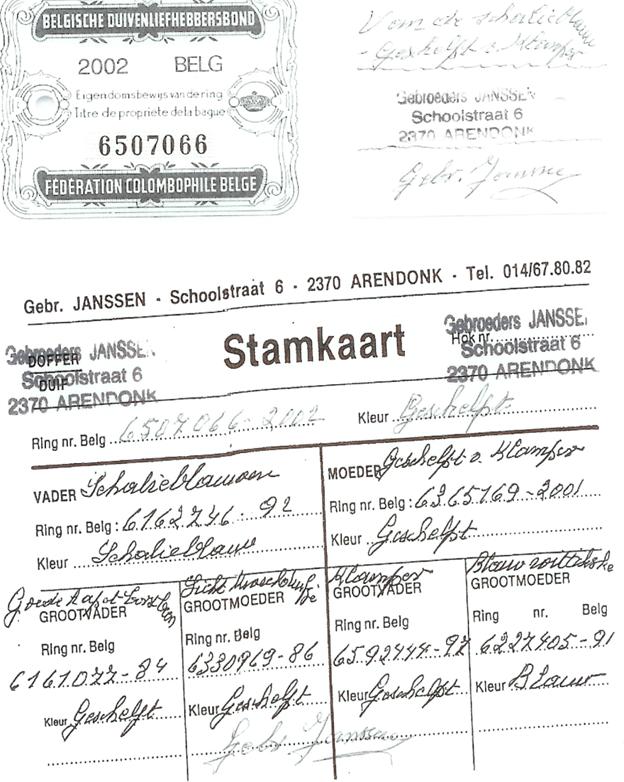 BELGISCHE DUIVENLIEFHEBBERSBOND
2002 BELG
Eigendomsbewijs van de ring
Titre de propriete de la bague
6507066
FÉDÉRATION COLOMBOPHILE BELGE
Van de schalieblauwe
- Geschelpt v. Klamper
Gebroeders JANSSEN
Schoolstraat 6
2370 ARENDONK
Gebr. Janssen
Gebr. JANSSEN - Schoolstraat 6 - 2370 ARENDONK - Tel. 014/67.80.82
Gebroeders JANSSEN
DOFFER
Schoolstraat 6
DUIF
2370 ARENDONK
Stamkaart
Gebroeders JANSSE
Hok nr.
Schoolstraat 6
2370 ARENDONK
Ring nr. Belg 6507066-2002 Kleur Geschelpt
VADER Schalieblauwen
Ring nr. Belg : 6162746-92
Kleur Schalieblauw
MOEDER Geschelpt v. Klamper
Ring nr. Belg : 6365169-2001
Kleur Geschelpt
GROOTVADER
Ring nr. Belg
6161077-84
Kleur Geschelpt
GROOTMOEDER
Ring nr. Belg
6330969-86
Kleur Geschelpt
Klamper
GROOTVADER
Ring nr. Belg
6592444-97
Kleur Geschelpt
Blauw
GROOTMOEDER
Ring nr. Belg
6227405-91
Kleur Blauw
Gebr. Janssen